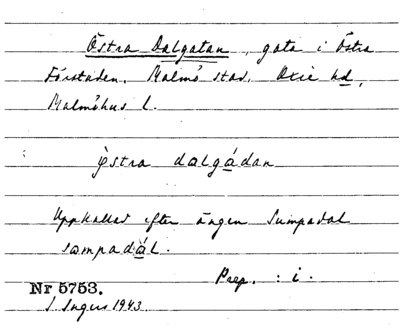 Östra Dalgatan, gata i Östra
Förstaden, Malmö stad, Oxie hd,
Malmöhus l.
östra dalgádan
Uppkallad efter ängen Sumpadal
sɷmpadál.
Prep. : i.
Nr 5753.
S. Ingers 1943.